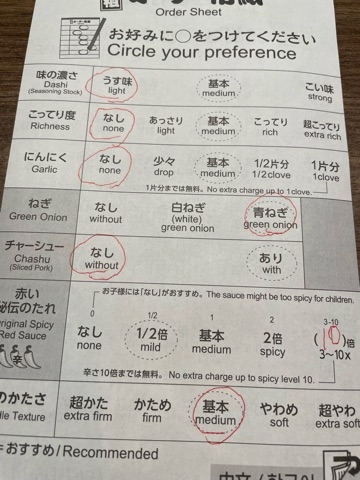 Order Sheet
お好みに○をつけてください
Circle your preference
味の濃さ うす味 基本 こい味
Dashi light medium strong
(Seasoning Stock)
こってり度 なし あっさり 基本 こってり 超こってり
Richness none light medium rich extra rich
にんにく なし 少々 基本 1/2片分 1片分
Garlic none drop medium 1/2clove 1clove
1片分までは無料。No extra charge up to 1 clove.
ねぎ なし 白ねぎ 青ねぎ
Green Onion without (white) green onion
green onion
チャーシュー なし あり
Chashu without with
(Sliced Pork)
赤い お子様には「なし」がおすすめ。The sauce might be too spicy for children.
秘伝のたれ 0 1/2 1 2 3-10
Original Spicy なし 1/2倍 基本 2倍 (10)倍
Red Sauce none mild medium spicy 3~10x
辛
辛さ10倍までは無料。No extra charge up to spicy level 10.
のかたさ 超かた かため 基本 やわめ 超やわ
dle Texture extra firm firm medium soft extra soft
=おすすめ/Recommended